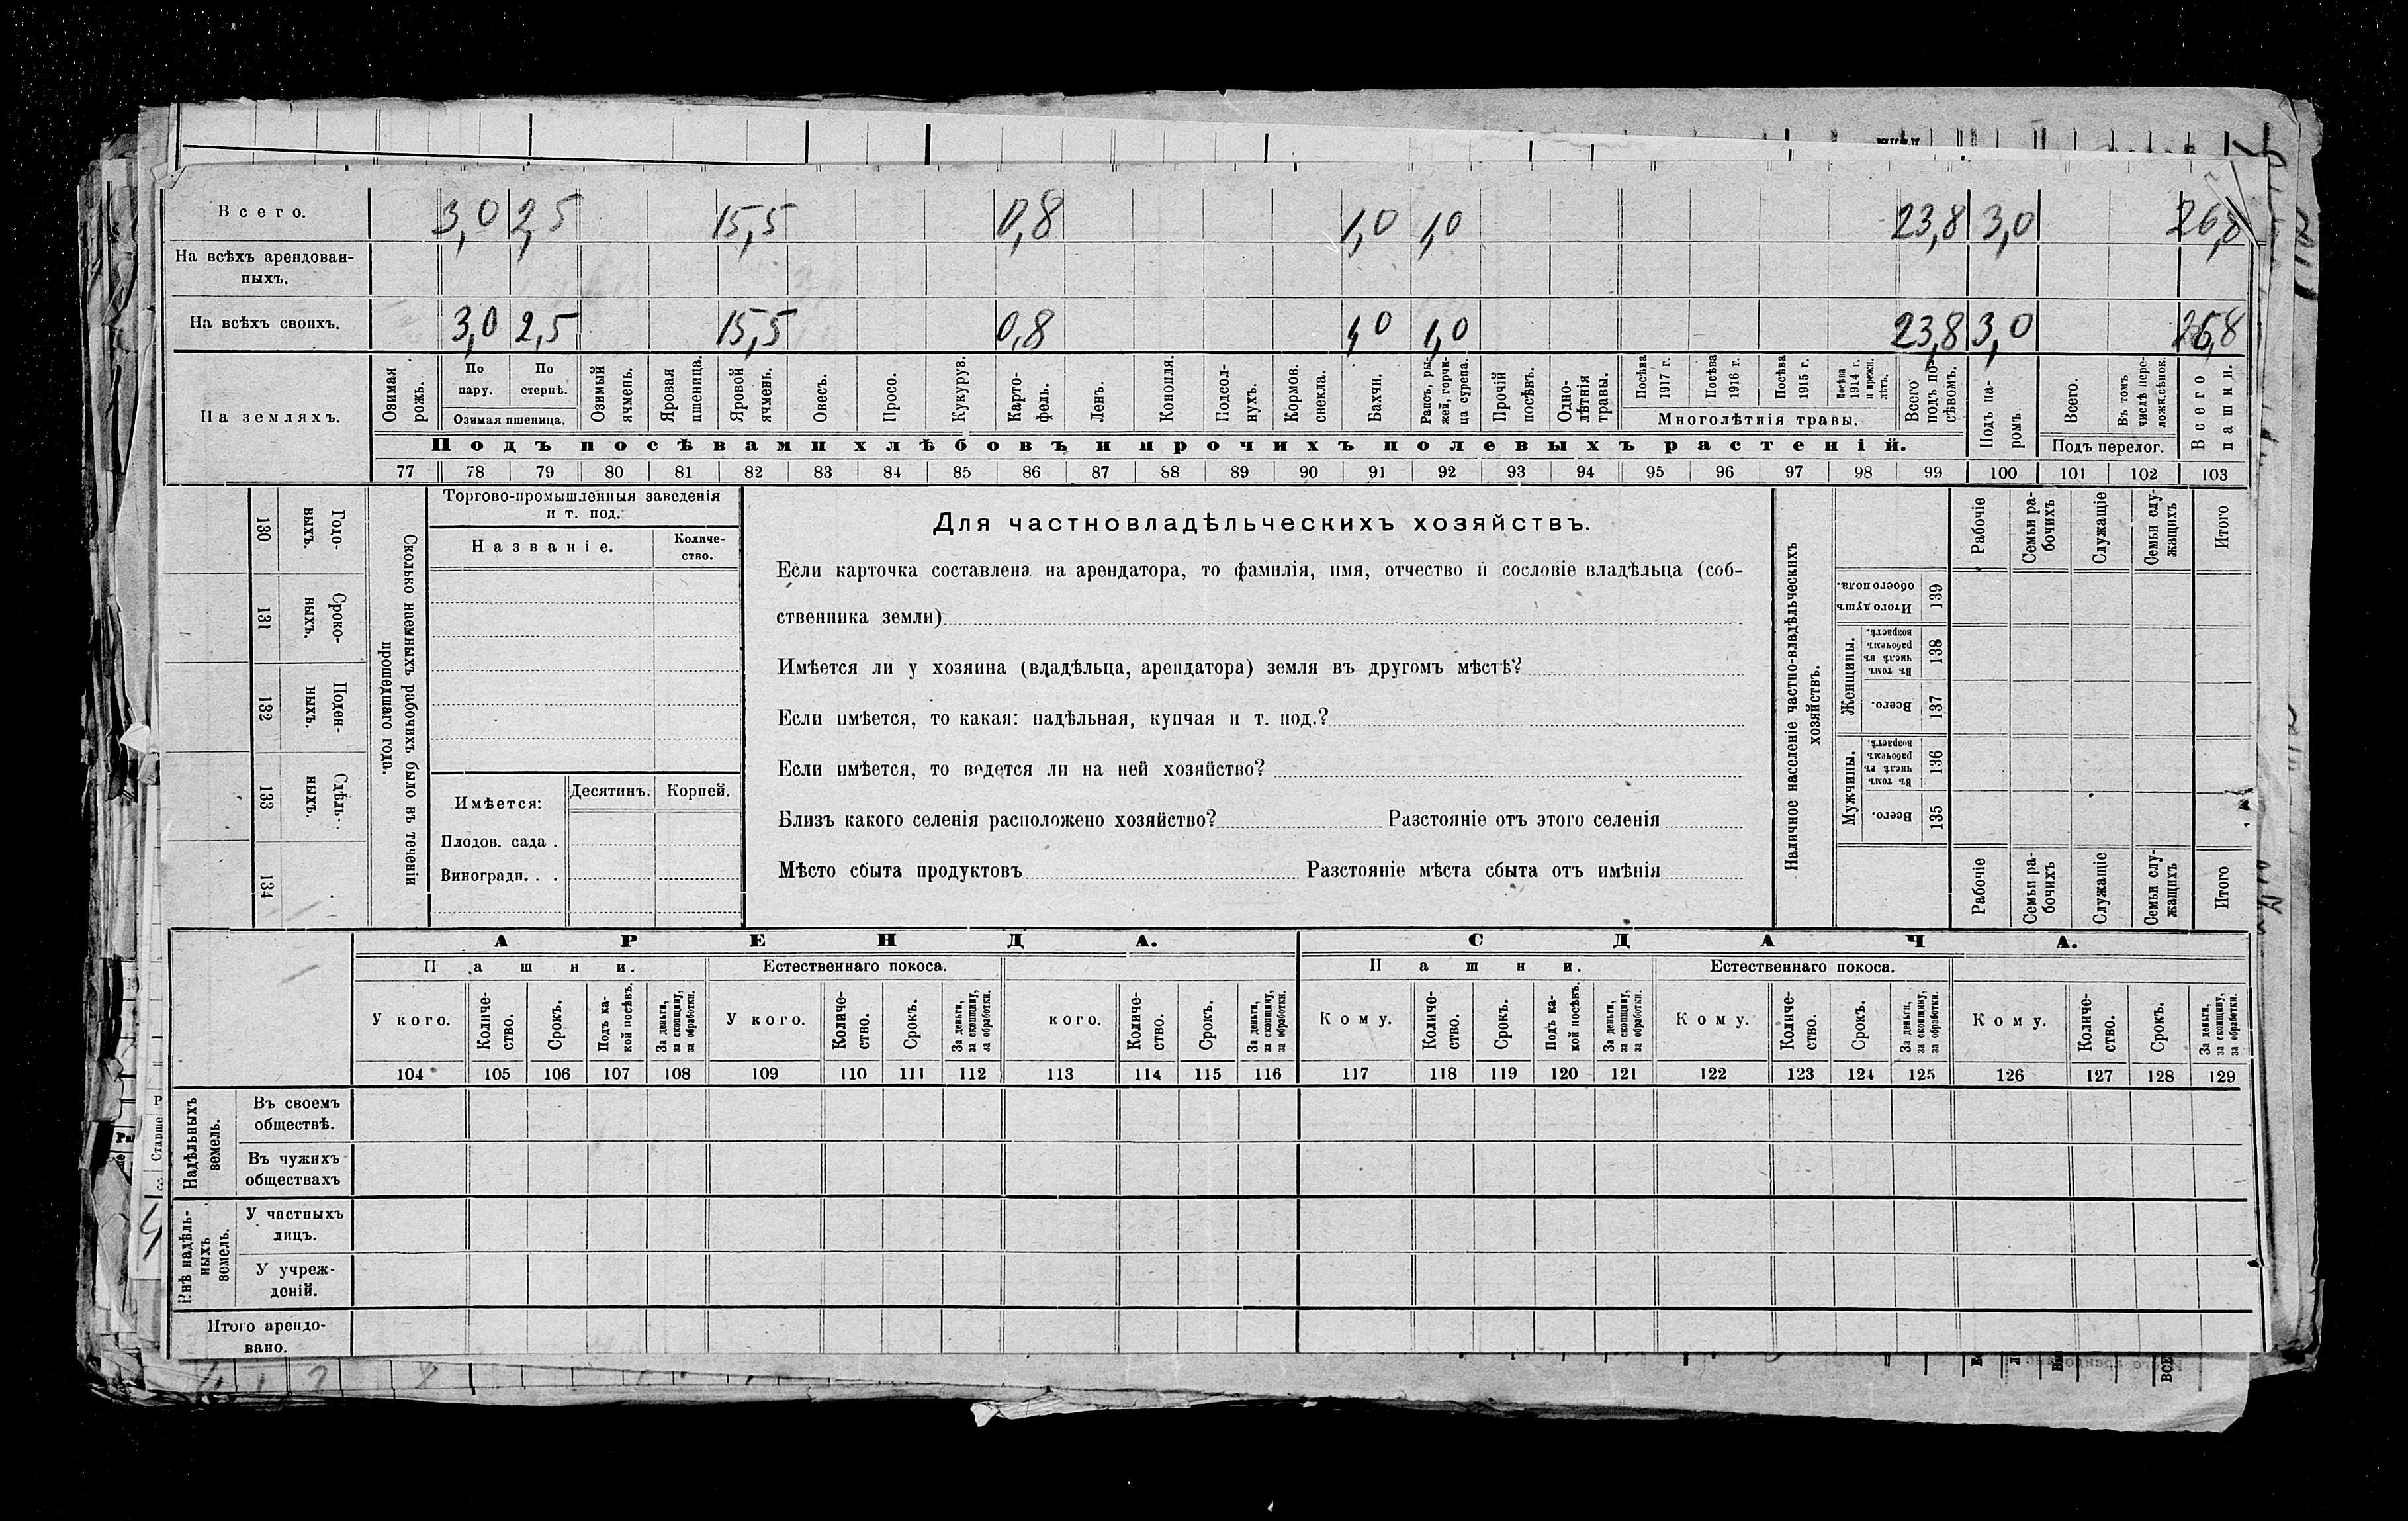 Всего. 3,0 2,5 15,5 0,8 1,0 1,0 23,8 3,0 26,8
На всѣхъ арендован-
ныхъ.
На всѣхъ своихъ. 3,0 2,5 15,5 0,8 1,0 1,0 23,8 3,0 26,8
На земляхъ.
Озимая рожь.
По пару.
По стернѣ.
Озимая пшеница.
Озимый ячмень.
Яровая пшеница.
Яровой ячмень.
Овесъ.
Просо.
Кукуруз.
Карто-
фель.
Ленъ.
Конопля.
Подсол-
нухъ.
Кормов. свекла.
Бахчи.
Рапсъ, ры-
жей, горчи-
ца сурепа.
Прочій посѣвъ.
Одно-
лѣтнія травы.
Посѣва 1917 г.
Посѣва 1916 г.
Посѣва 1915 г.
Посѣва 1914 г. и прежн. лѣтъ.
Многолѣтнія травы.
Всего подъ по-
сѣвомъ.
Подъ па-
ромъ.
Всего.
Въ томъ числѣ пере-
ложн.сѣнок.
Подъ перелог.
Всего пашни.
Подъ посѣвами хлѣбовъ и прочихъ полевыхъ растеній.
77 78 79 80 81 82 83 84 85 86 87 88 89 90 91 92 93 94 95 96 97 98 99 100 101 102 103
130 Годо-
ныхъ.
131 Сроко-
ныхъ.
132 Поден-
ныхъ.
133 Сдѣль-
ныхъ.
134
Сколько наемныхъ рабочихъ было въ теченіи
прошедшаго года.
Торгово-промышленныя заведенія
и т. под.
Названіе.
Количе-
ство.
Имѣется:
Десятинъ.
Корней.
Плодов. сада .
Виноградн. . .
Для частновладѣльческихъ хозяйствъ.
Если карточка составлена на арендатора, то фамилія, имя, отчество и сословіе владѣльца (соб-
ственника земли)
Имѣется ли у хозяина (владѣльца, арендатора) земля въ другомъ мѣстѣ?
Если имѣется, то какая: надѣльная, купчая и т. под.?
Если имѣется, то ведется ли на ней хозяйство?
Близъ какого селенія расположено хозяйство? Разстояніе отъ этого селенія
Мѣсто сбыта продуктовъ Разстояніе мѣста сбыта отъ имѣнія
Наличное населеніе частно-владѣльческихъ
хозяйствъ.
Рабочіе
Семьи ра-
бочихъ
Служащіе
Семьи слу-
жащихъ
Итого
Итого душъ
обоего пола.
139
Женщины.
Въ томъ числѣ въ рабочемъ возрастѣ.
138
Всего.
137
Мужчины.
Въ томъ числѣ въ рабочемъ возрастѣ.
136
Всего.
135
Рабочіе
Семьи ра-
бочихъ
Служащіе
Семьи слу-
жащихъ
Итого
АРЕНДА. СДАЧА.
Пашни. Естественнаго покоса. Пашни. Естественнаго покоса.
У кого.
Количе-
ство.
Срокъ.
Подъ ка-
кой посѣвъ.
За деньги, за скопщину, за обработки.
У кого.
Количе-
ство.
Срокъ.
За деньги, за скопщину, за обработки.
кого.
Количе-
ство.
Срокъ.
За деньги, за скопщину, за обработки.
Кому.
Количе-
ство.
Срокъ.
Подъ ка-
кой посѣвъ.
За деньги, за скопщину, за обработки.
Кому.
Количе-
ство.
Срокъ.
За деньги, за скопщину, за обработки.
Кому.
Количе-
ство.
Срокъ.
За деньги, за скопщину, за обработки.
104 105 106 107 108 109 110 111 112 113 114 115 116 117 118 119 120 121 122 123 124 125 126 127 128 129
Надѣльныхъ
земель.
Въ своемъ
обществѣ.
Въ чужихъ
обществахъ
Внѣ надѣль-
ныхъ
земель.
У частныхъ
лицъ.
У учреж-
деній.
Итого арендо-
вано.